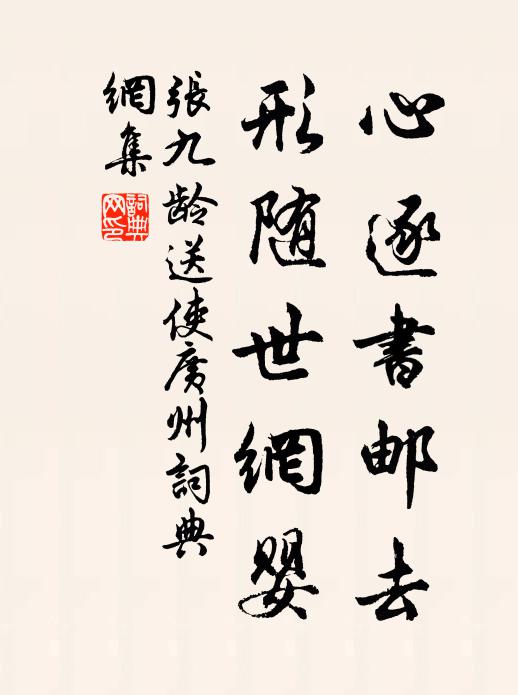 心逐書邮去
形随世網嬰
張九龄送使廣州詞典
網集
詞典
网印